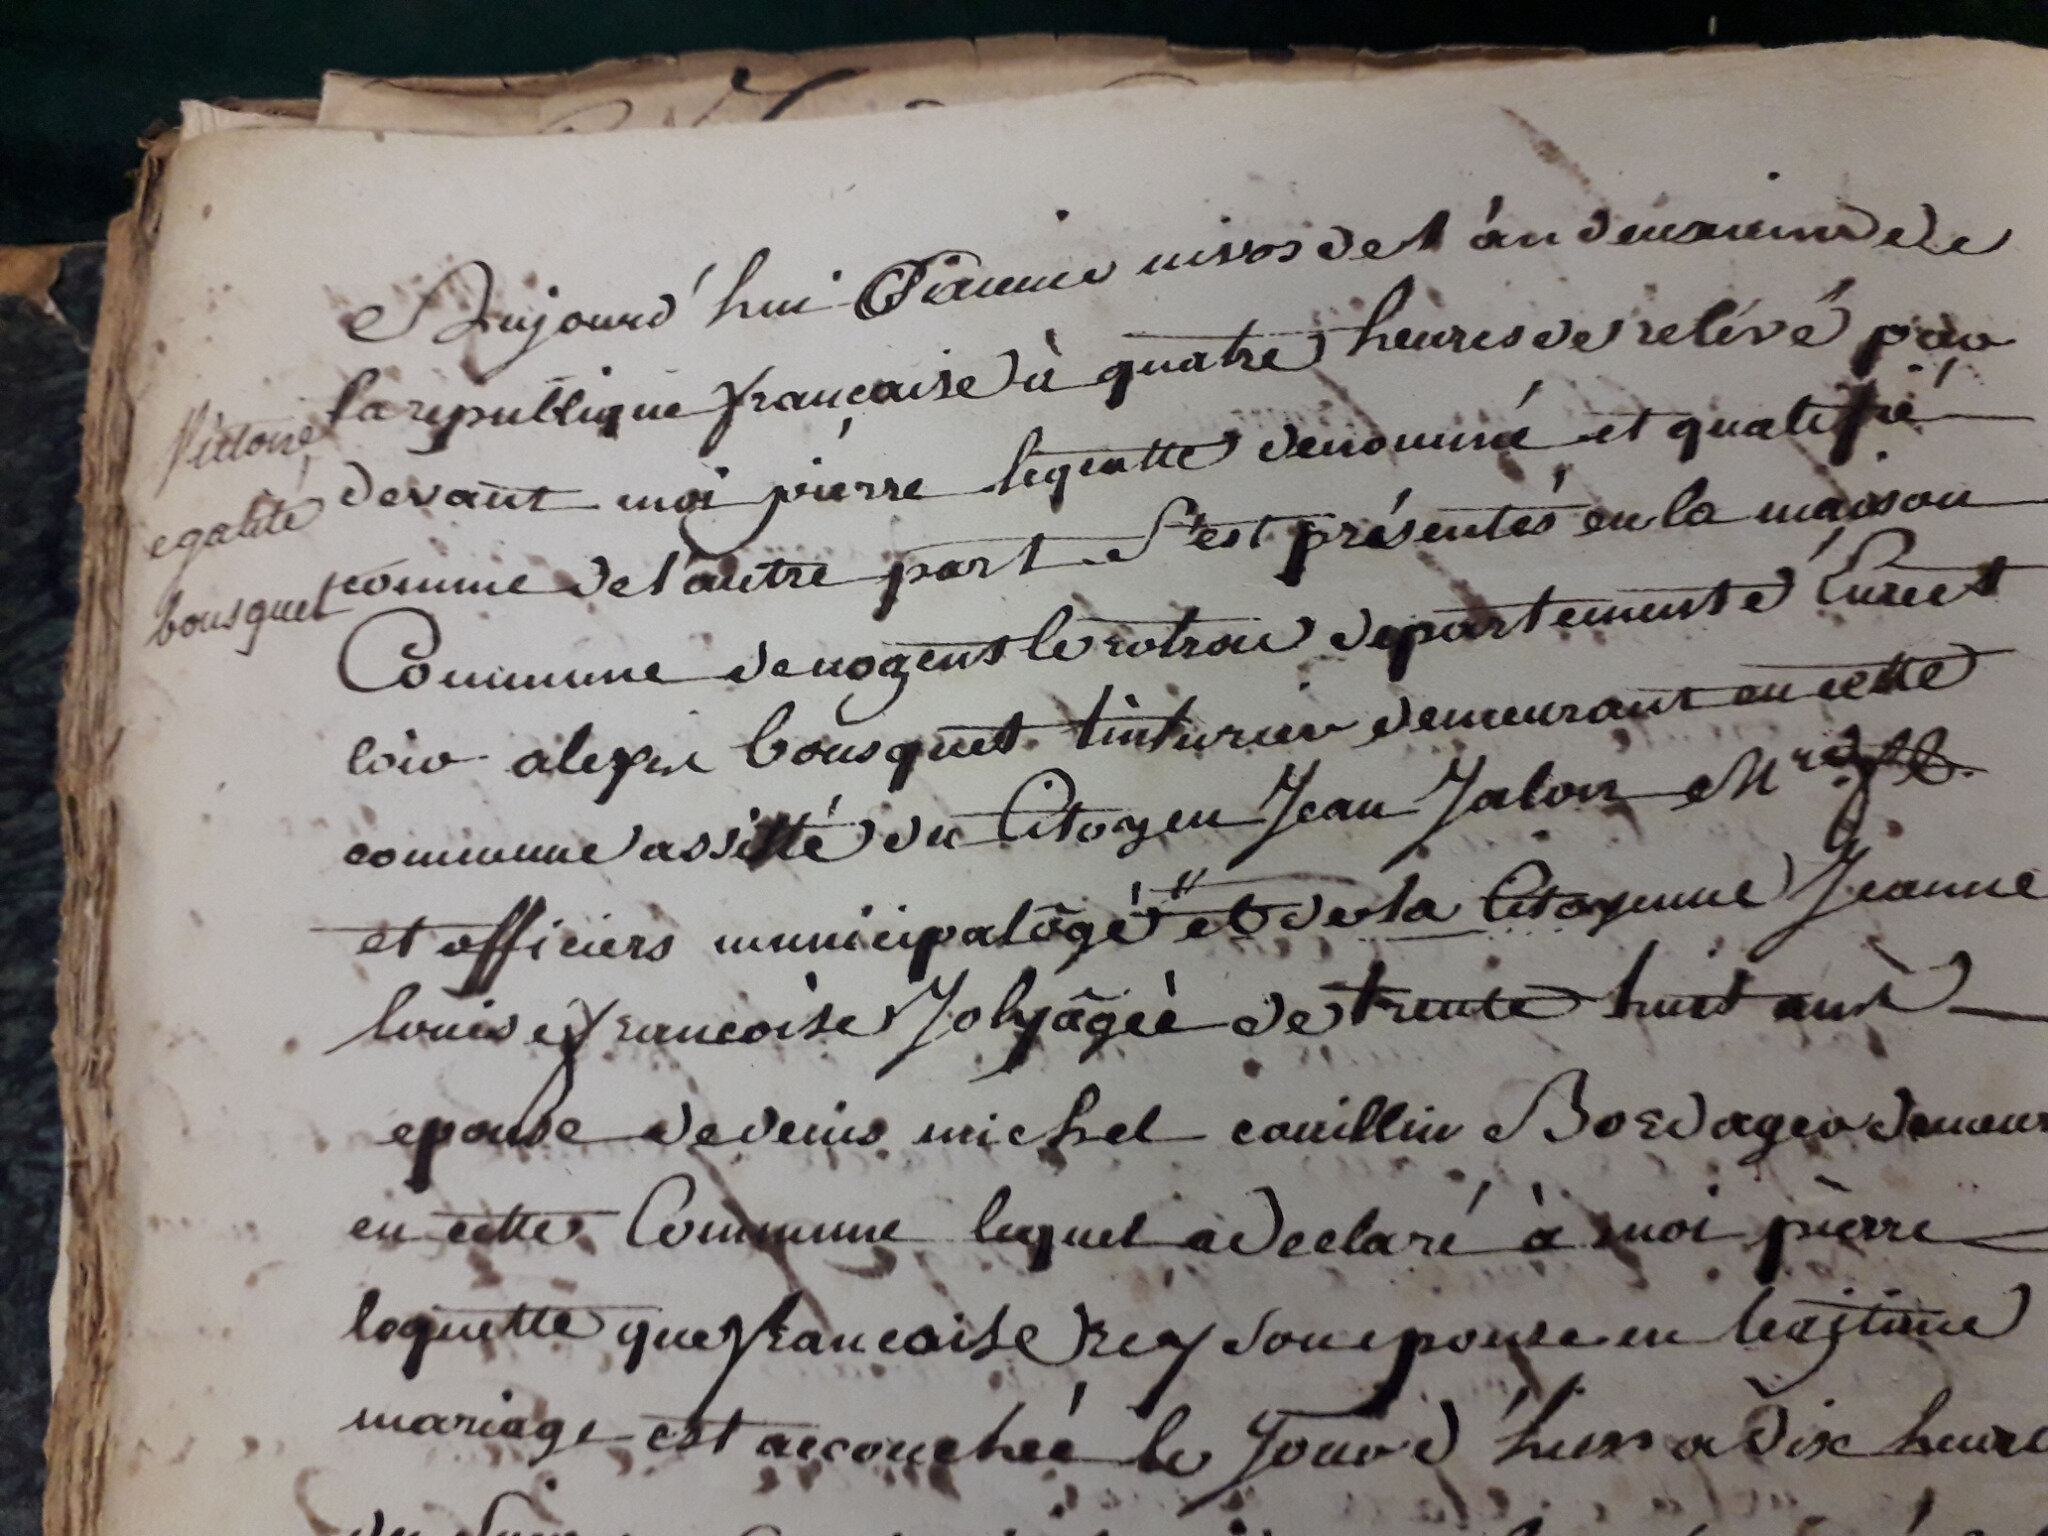 Victoire
egalité
bousquet
Aujourd'hui nivos de l'an deuxieme de
la republique francaise à quatre heures de relévé par
devant moi piérre lequette denommé et qualifié
comme de l'autre part s'est présentés en la maison
Commune denogent le rotrou departement d'Eure et
loir alexis bousquet tinturier demeurant en cette
commune assisté du Citoyen Jean Jalon
et officiers municipal âgé et de la Citoyenne Jeanne
louise francoise Joly âgée de trente huit ans
epouse de denis michel couillin Bordager demeur
en cette Commune lequel a declaré à moi pièrre
lequette que francoise rey son epouse en legitime
mariage est accouchée le Jour d'hier a dix heure
du soir